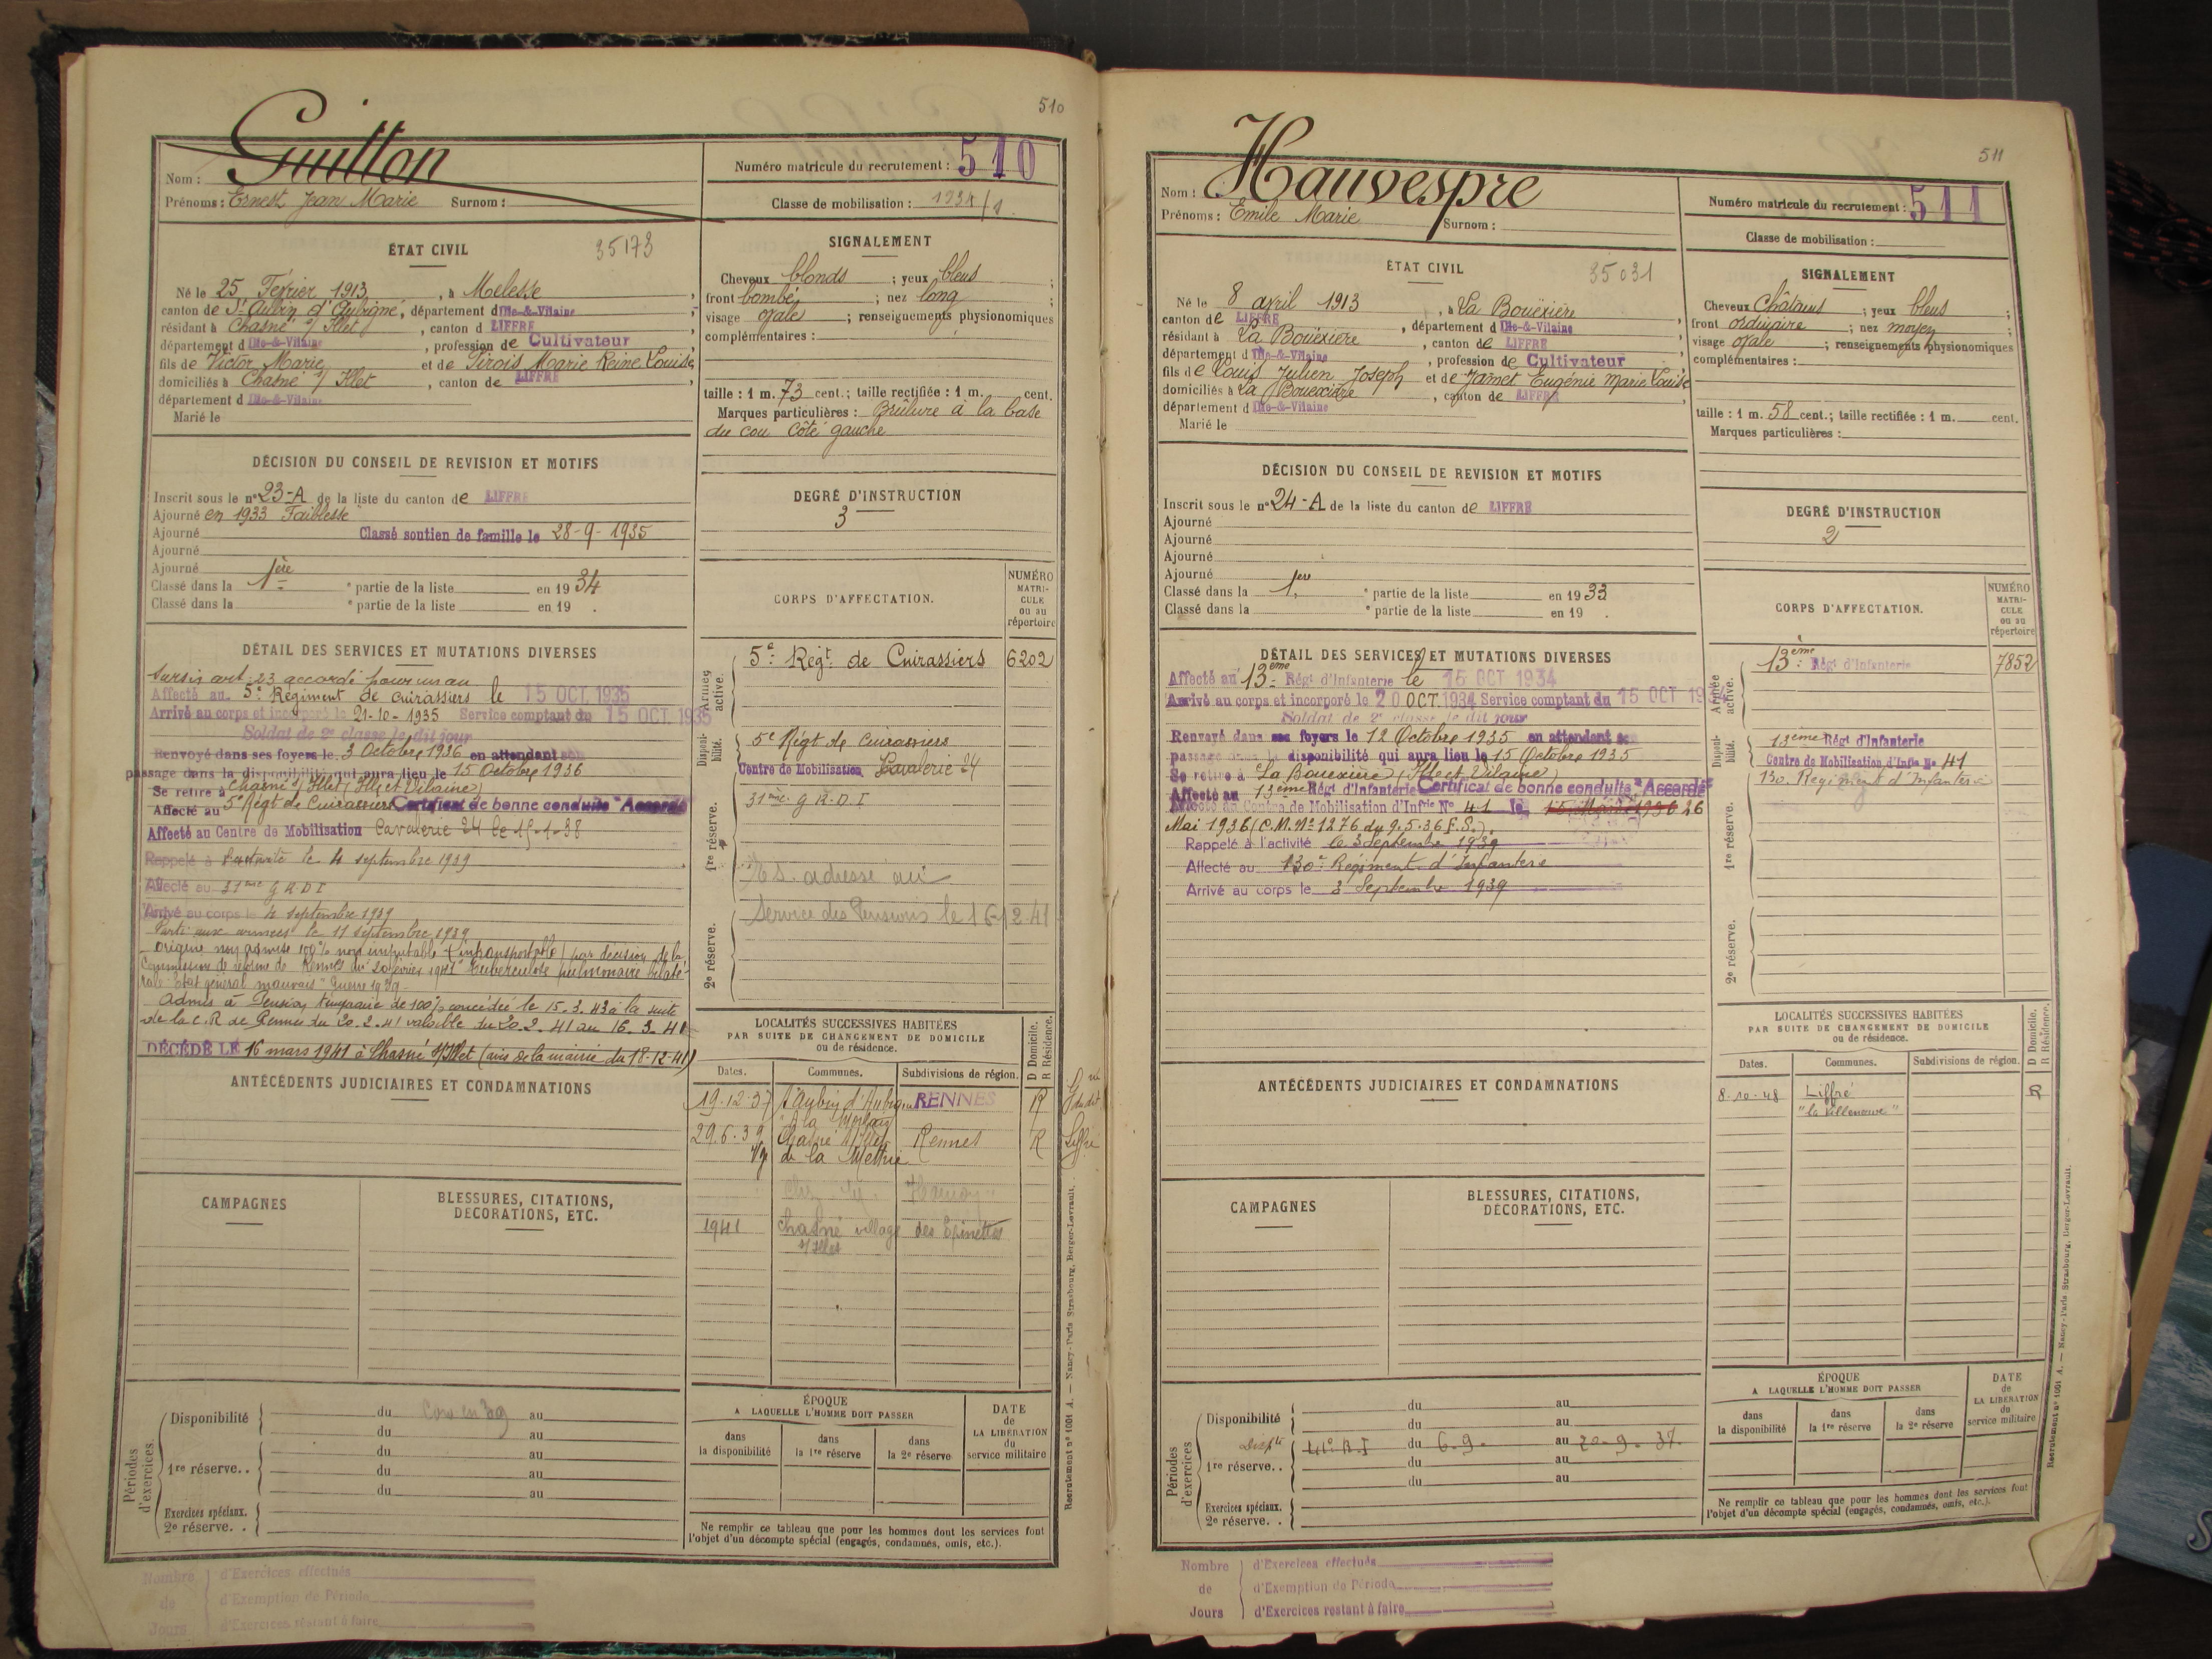 510
Guitton
Nom :
Prénoms : Ernest Jean Marie Surnom :
Numéro matricule du recrutement : 510
Classe de mobilisation : 1934/1
ÉTAT CIVIL 35173
Né le 25 Février 1913, à Melesse,
canton de St Aubin d'Aubigné, département d Ille-&-Vilaine
résidant à Chasné s/ Illet, canton d LIFFRÉ
département d Ille-&-Vilaine, profession de Cultivateur
fils de Victor Marie et de Pirois Marie Reine Louise,
domiciliés à Chasné s/ Illet, canton de LIFFRÉ,
département d Ille-&-Vilaine
Marié le
SIGNALEMENT
Cheveux blonds ; yeux bleus ;
front bombé ; nez long ;
visage ovale ; renseignements physionomiques
complémentaires :
taille : 1 m. 73 cent.; taille rectifiée : 1 m. cent.
Marques particulières : Brûlure à la base
du cou côté gauche
DÉCISION DU CONSEIL DE REVISION ET MOTIFS
Inscrit sous le n° 23-A de la liste du canton de LIFFRÉ
Ajourné en 1933 Faiblesse
Ajourné Classé soutien de famille le 28-9-1935
Ajourné
Ajourné
Classé dans la 1ère partie de la liste en 1934
Classé dans la e partie de la liste en 19 .
DEGRÉ D'INSTRUCTION
3
CORPS D'AFFECTATION.
NUMÉRO
MATRI-
CULE
ou au
répertoire
Armée active.
5e Régt de Cuirassiers 6202
Disponibilité.
5e Régt de Cuirassiers
Centre de Mobilisation Cavalerie 24
1re réserve.
31ème G.R.D.I
adresse au
Service des Pensions le 16-12-41
2e réserve.
DÉTAIL DES SERVICES ET MUTATIONS DIVERSES
Sursis art. 23 accordé pour un an
Affecté au 5e Régiment de Cuirassiers le 15 OCT. 1935
Arrivé au corps et incorporé le 21-10-1935 Service comptant du 15 OCT. 1935
Soldat de 2e classe le dit jour
Renvoyé dans ses foyers le 3 Octobre 1936 en attendant son
passage dans la disponibilité qui aura lieu le 15 Octobre 1936
Se retire à Chasné s/ Illet (Ille et Vilaine)
Affecté au 5e Régt de Cuirassiers Certificat de bonne conduite "Accordé
Affecté au Centre de Mobilisation Cavalerie 24 le 15-1-38
Rappelé à l'activité le 4 septembre 1939
Affecté au 31ème G.R.D.I
Arrivé au corps le 4 septembre 1939
Parti aux armées le 11 septembre 1939
origine non admise 100% non imputable (intransportable) par décision de la
Commission de réforme de Rennes du 20 février 1941 "tuberculose pulmonaire bilaté-
rale - Etat général mauvais" Guerre 1939.
Admis à Pension temporaire de 100% concédée le 15.3.43 à la suite
de la C.R de Rennes du 20.2.41 valable du 20.2.41 au 16.3.41
DÉCÉDÉ LE 16 mars 1941 à Chasné s/Illet (avis de la mairie du 18-12-41)
ANTÉCÉDENTS JUDICIAIRES ET CONDAMNATIONS
LOCALITÉS SUCCESSIVES HABITÉES
PAR SUITE DE CHANGEMENT DE DOMICILE
ou de résidence.
D Domicile.
R Résidence.
Dates. Communes. Subdivisions de région.
19.12.37 St Aubin d'Aubigné RENNES R
29.6.39 Chasné s/Illet Rennes R Liffré
de la Mettrie
1941 Chasné village des Epinettes
s/Illet
CAMPAGNES
BLESSURES, CITATIONS,
DÉCORATIONS, ETC.
Périodes d'exercices.
Disponibilité du au
du au
1re réserve.. du au
du au
du au
Exercices spéciaux.
2e réserve. .
ÉPOQUE
A LAQUELLE L'HOMME DOIT PASSER
dans la disponibilité
dans la 1re réserve
dans la 2e réserve
DATE
de
LA LIBÉRATION
du
service militaire
Ne remplir ce tableau que pour les hommes dont les services font
l'objet d'un décompte spécial (engagés, condamnés, omis, etc.).
Recrutement n° 1001 A. — Nancy-Paris Strasbourg, Berger-Levrault.
Nombre d'Exercices effectués
de d'Exemption de Période
Jours d'Exercices restant à faire
511
Hauvespre
Nom :
Prénoms : Emile Marie Surnom :
Numéro matricule du recrutement : 511
Classe de mobilisation :
ÉTAT CIVIL 35031
Né le 8 avril 1913, à La Bouëxière,
canton de LIFFRÉ, département d Ille-&-Vilaine
résidant à La Bouëxière, canton de LIFFRÉ
département d Ille-&-Vilaine, profession de Cultivateur
fils de Louis Julien Joseph et de Jamet Eugénie Marie Louise
domiciliés à La Bouëxière, canton de LIFFRÉ,
département d Ille-&-Vilaine
Marié le
SIGNALEMENT
Cheveux Châtains ; yeux bleus ;
front ordinaire ; nez moyen ;
visage ovale ; renseignements physionomiques
complémentaires :
taille : 1 m. 58 cent.; taille rectifiée : 1 m. cent.
Marques particulières :
DÉCISION DU CONSEIL DE REVISION ET MOTIFS
Inscrit sous le n° 24-A de la liste du canton de LIFFRÉ
Ajourné
Ajourné
Ajourné
Ajourné
Classé dans la 1ère partie de la liste en 1933
Classé dans la e partie de la liste en 19 .
DEGRÉ D'INSTRUCTION
2
CORPS D'AFFECTATION.
NUMÉRO
MATRI-
CULE
ou au
répertoire
Armée active.
13ème Régt d'Infanterie 7852
Disponibilité.
13ème Régt d'Infanterie
Centre de Mobilisation d'Infie No 41
130e Regiment d'Infanterie
1re réserve.
2e réserve.
DÉTAIL DES SERVICES ET MUTATIONS DIVERSES
Affecté au 13ème Régt d'Infanterie le 15 OCT 1934
Arrivé au corps et incorporé le 20 OCT. 1934 Service comptant du 15 OCT 1934
Soldat de 2e classe le dit jour
Renvoyé dans ses foyers le 12 Octobre 1935 en attendant son
passage dans la disponibilité qui aura lieu le 15 Octobre 1935
Se retire à La Bouëxière (Ille et Vilaine)
Affecté au 13ème Régt d'Infanterie Certificat de bonne conduite "Accordé"
Affecté au Centre de Mobilisation d'Infie No 41 le 26
Mai 1936 (C.M. No 1276 du 9.5.36 E.S.).
Rappelé à l'activité le 3 Septembre 1939
Affecté au 130e Regiment d'Infanterie
Arrivé au corps le 3 Septembre 1939
ANTÉCÉDENTS JUDICIAIRES ET CONDAMNATIONS
LOCALITÉS SUCCESSIVES HABITÉES
PAR SUITE DE CHANGEMENT DE DOMICILE
ou de résidence.
D Domicile.
R Résidence.
Dates. Communes. Subdivisions de région.
8-10-48 Liffré R
"la Villeneuve"
CAMPAGNES
BLESSURES, CITATIONS,
DÉCORATIONS, ETC.
Périodes d'exercices
Disponibilité du au
du au
Dispté 41e R.I du 6.9. au 20-9.37.
1re réserve.. du au
du au
Exercices spéciaux.
2e réserve. .
ÉPOQUE
A LAQUELLE L'HOMME DOIT PASSER
dans la disponibilité
dans la 1re réserve
dans la 2e réserve
DATE
de
LA LIBÉRATION
du
service militaire
Ne remplir ce tableau que pour les hommes dont les services font
l'objet d'un décompte spécial (engagés, condamnés, omis, etc.).
Recrutement n° 1001 A. — Nancy-Paris Strasbourg, Berger-Levrault.
Nombre d'Exercices effectués
de d'Exemption de Période
Jours d'Exercices restant à faire